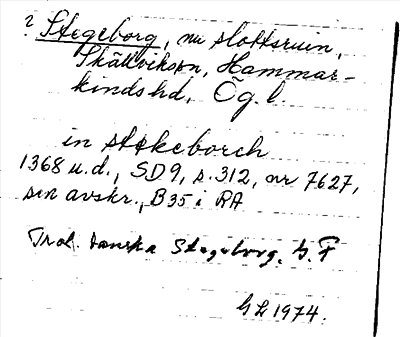 ? Stegeborg, nu slottsruin,
Skällvikssn, Hammar-
kindshd, Ög.l.
in stekeborch
1368 u.d., SD9, s.312, nr 7627,
sen avskr., B35 i RA
Trol. danska Stegeborg. G.F
GL 1974.